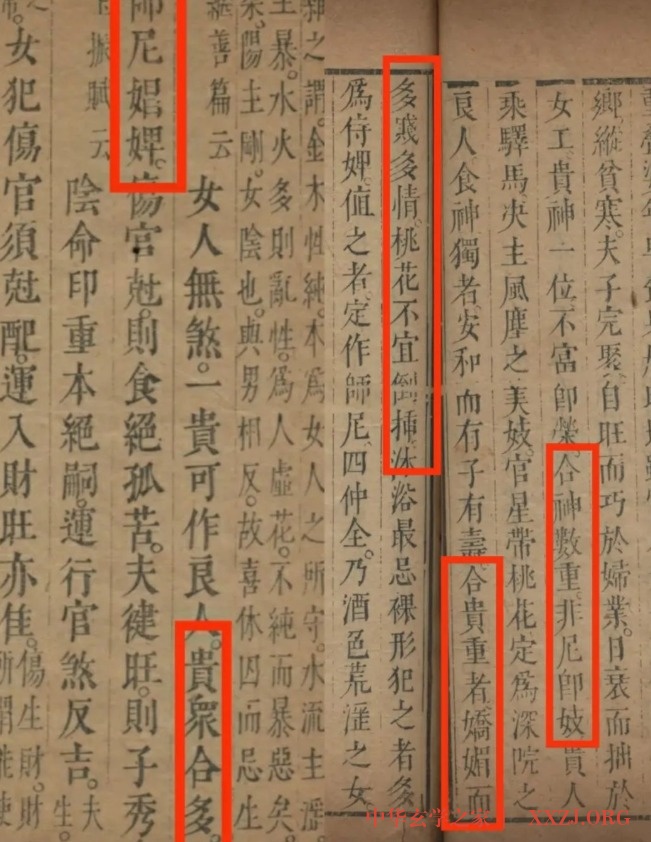 鄉縱貧寒。夫子完聚。自旺而巧於婦業。日衰而拙於
女工貴神一位。不富卽榮。合神數重。非尼卽妓。貴人
乘驛馬决主風塵之美妓。官星帶桃花定爲深院之
良人食神獨者。安和而有子有壽。合貴重者。嬌媚而
多賤多情。桃花不宜倒插。沐浴最忌裸形犯之者多
爲侍婢。值之者。定作師尼。四仲全。乃酒色荒淫之女。
神之謂。金木性純。本爲女人之所守。水流主淫
主暴。水火多則亂性。爲人虛花。不純而暴惡矣。
柔。陽主剛。女陰也。與男相反。故喜休囚而忌生
繼善篇云 女人無煞。一貴可作良人。貴衆合多。
師尼娼婢。傷官尅。則食絕孤苦。夫健旺。則子秀
振賦云 陰命印重本絕嗣。運行官煞反吉。夫生。
女犯傷官須尅配。運入財旺亦佳。傷生財。財
中华玄学之家 XXZJ.ORG